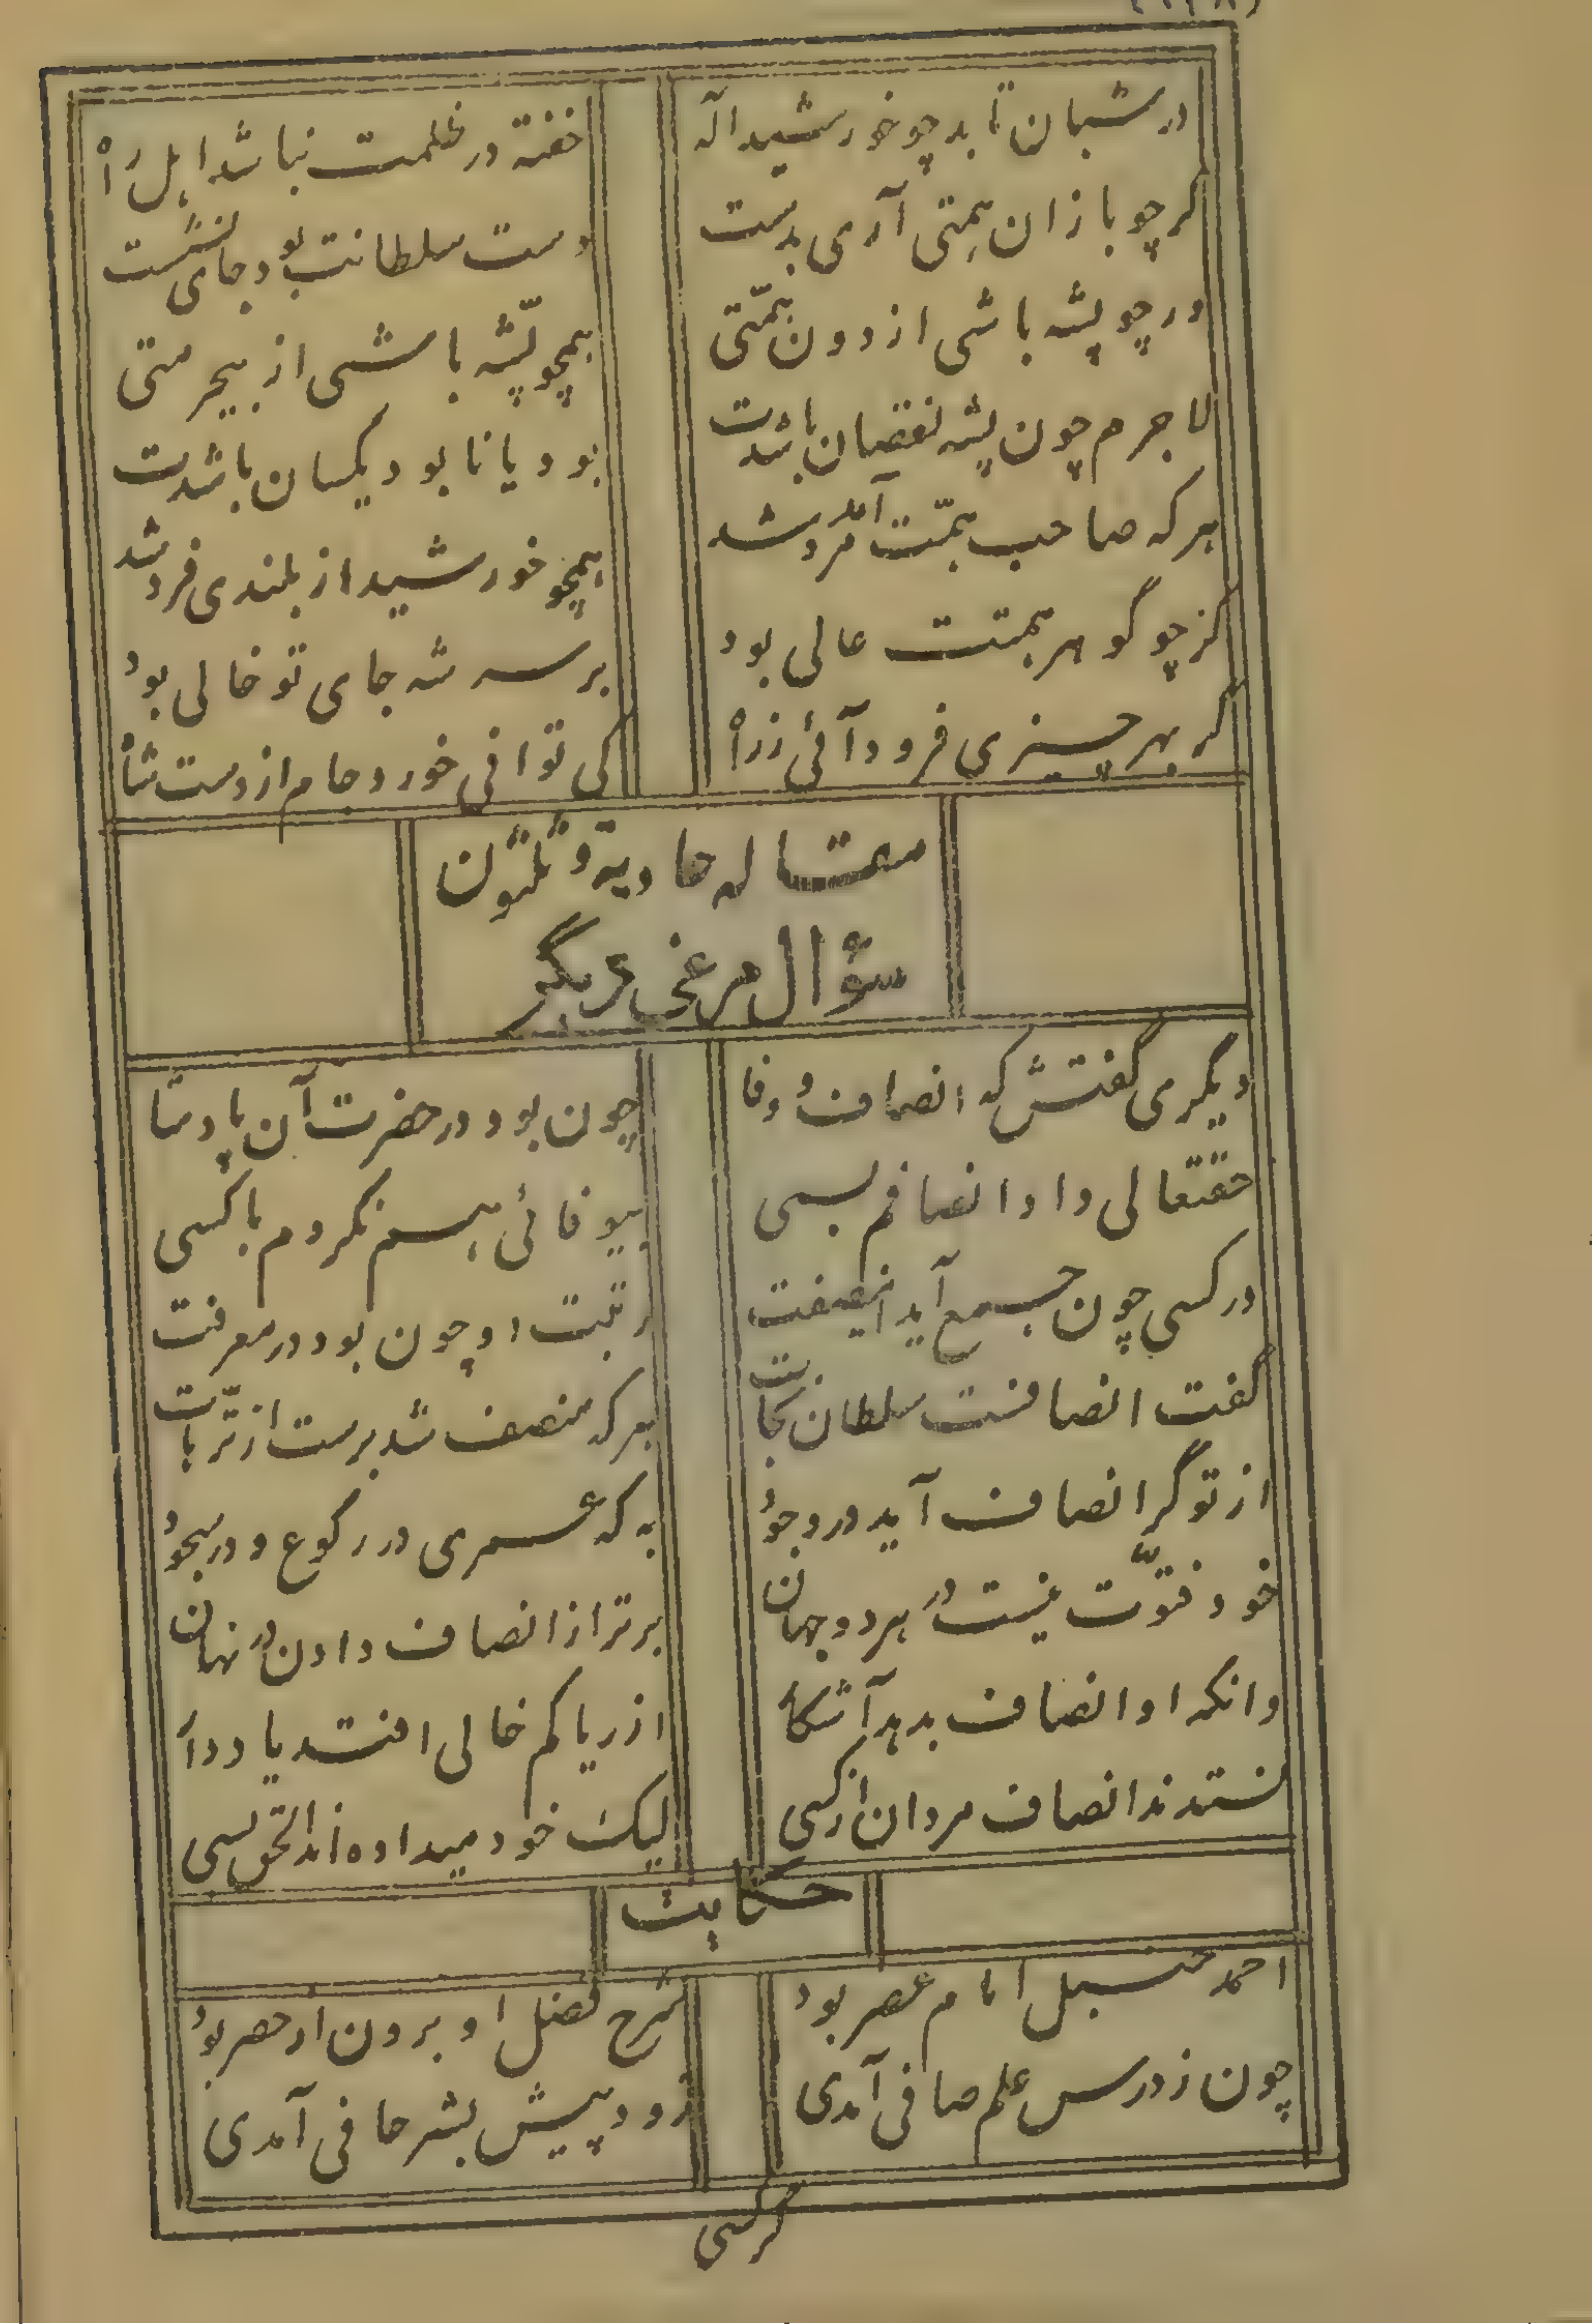 در شبان تابد چو خورشید اله
خفته در ظلمت نباشد اهل راه
گر چو بازان همتی آری بدست
دست سلطانت بود جای نشست
ور چو پشه باشی از دون همّتی
همچو پشّه باشی از بیحرمتی
لاجرم چون پشه نقصان باشدت
بود یا نابود یکسان باشدت
هر که صاحب همّت آمد مرد شد
همچو خورشید از بلندی فرد شد
گر چو گوهر همتت عالی بود
بر سر شه جای تو خالی بود
گر بهر چیزی فرود آئی ز راه
کی توانی خورد جام از دست شاه
مقاله حادیة و ثلثون
سؤال مرغی دیگر
دیگری گفتش که انصاف و وفا
چون بود در حضرت آن پادشا
حقتعالی داد انصافم بسی
بیوفائی هم نکردم با کسی
در کسی چون جمع آید اینصفت
رتبت او چون بود در معرفت
گفت انصافست سلطان نجات
هر که منصف شد برست از ترّهات
از تو گر انصاف آید در وجود
به که عمری در رکوع و در سجود
خود فتوّت نیست در هر دو جهان
برتر از انصاف دادن در نهان
وانکه او انصاف بدهد آشکار
از ریا کم خالی افتد یاد دار
نستدند انصاف مردان از کسی
لیک خود میداده‌اند الحق بسی
حکایت
احمد حنبل امام عصر بود
شرح فضل او برون از حصر بود
چون ز درس علم صافی آمدی
زود پیش بشر حافی آمدی
گر کسی